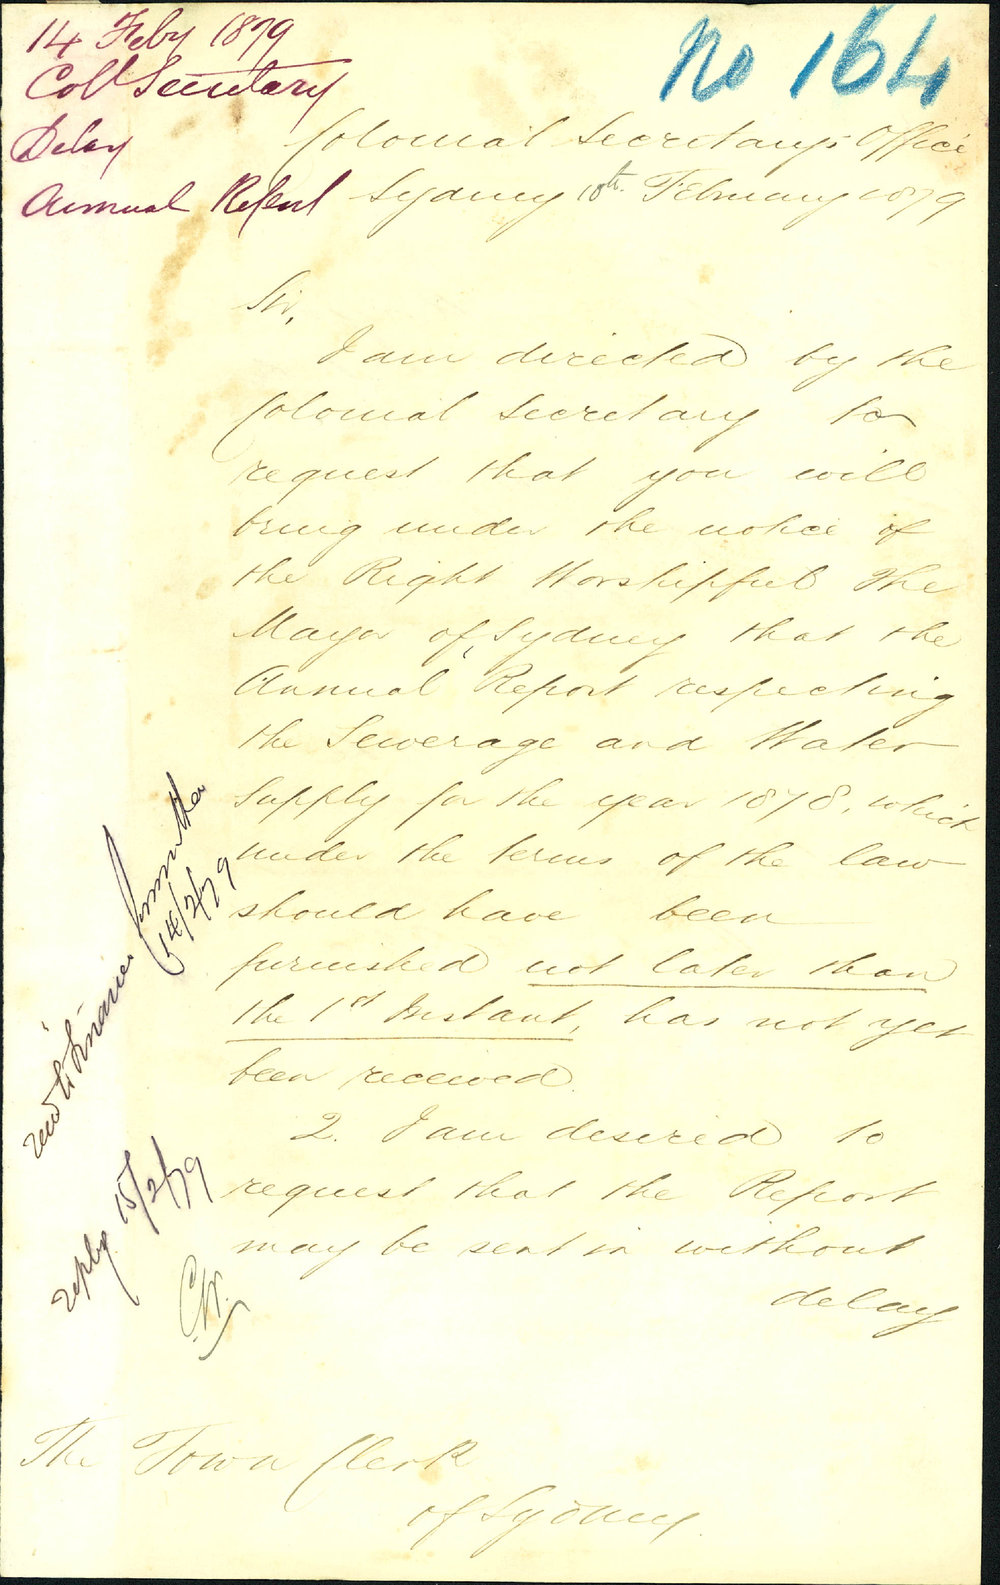 14 Feby 1879
Coll Secretary
Delay
Annual Report
No 164
Colonial Secretary's Office
Sydney 10th. February 1879
Sir,
I am directed by the
Colonial Secretary to
request that you will
bring under the notice of
the Right Worshipful The
Mayor of Sydney that the
Annual Report respecting
the Sewerage and Water
Supply for the year 1878, which
under the terms of the law
should have been
furnished not later than
the 1st Instant, has not yet
been received.
2. I am desired to
request that the Report
may be sent in without
delay
The Town Clerk
of Sydney.
Finance Committee
14/2/79
reply 15/2/79